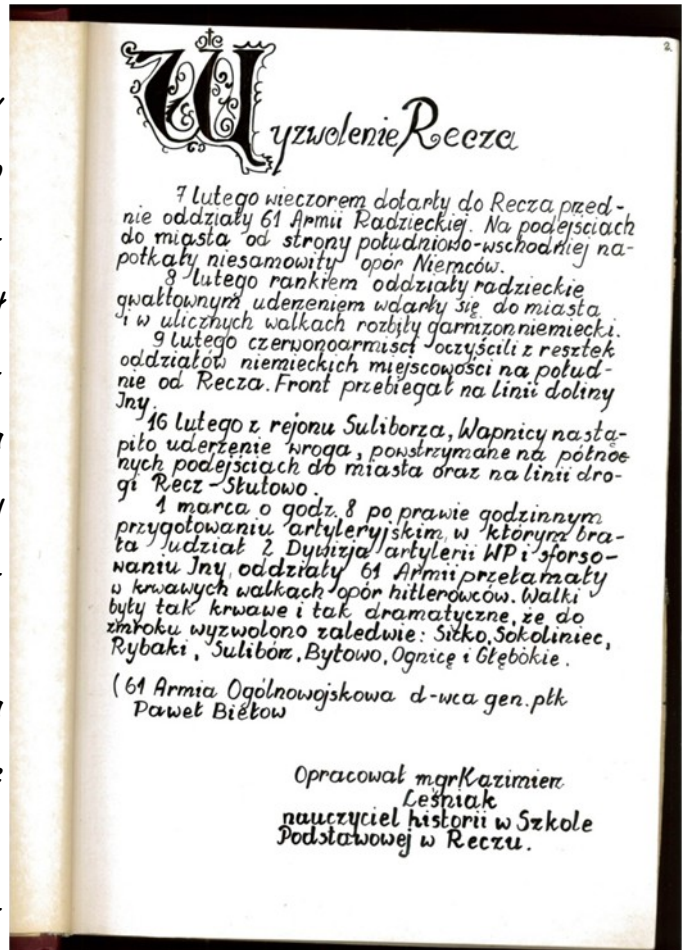 2
Wyzwolenie Recza
7 lutego wieczorem dotarły do Recza przed-
nie oddziały 61 Armii Radzieckiej. Na podejściach
do miasta od strony południowo-wschodniej na-
potkały niesamowity opór Niemców.
8 lutego rankiem oddziały radzieckie
gwałtownym uderzeniem wdarły się do miasta
i w ulicznych walkach rozbiły garnizon niemiecki.
9 lutego czerwonoarmiści oczyścili z resztek
oddziałów niemieckich miejscowości na połud-
nie od Recza. Front przebiegał na linii doliny
Iny.
16 lutego z rejonu Suliborza, Wapnicy nastą-
piło uderzenie wroga, powstrzymane na północ
nych podejściach do miasta oraz na linii dro-
gi Recz-Słutowo.
1 marca o godz. 8 po prawie godzinnym
przygotowaniu artyleryjskim, w którym bra-
ła udział 2 Dywizja artylerii WP i sforso-
waniu Iny, oddziały 61 Armii przełamały
w krwawych walkach opór hitlerowców. Walki
były tak krwawe i tak dramatyczne, że do
zmroku wyzwolono zaledwie: Sitko, Sokoliniec,
Rybaki, Sulibórz, Bytowo, Ognicę i Głębokie.
(61 Armia Ogólnowojskowa d-wca gen. płk
Paweł Biełow
Opracował mgr Kazimierz
Leśniak
nauczyciel historii w Szkole
Podstawowej w Reczu.